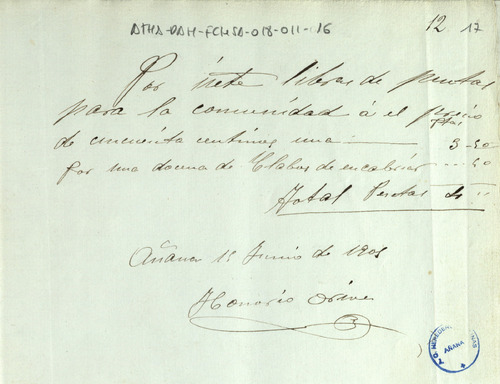 ATHA-DAH-FCHSA-018-011-16
12 17
Por siete libras de puntas
para la comunidad á el precio
ptas
de cincuenta centimos una 3-50
por una docena de Clabos de encabriar 50
Total Pesetas
Añana 1º Junio de 1905
Honorio Orive
AÑANA